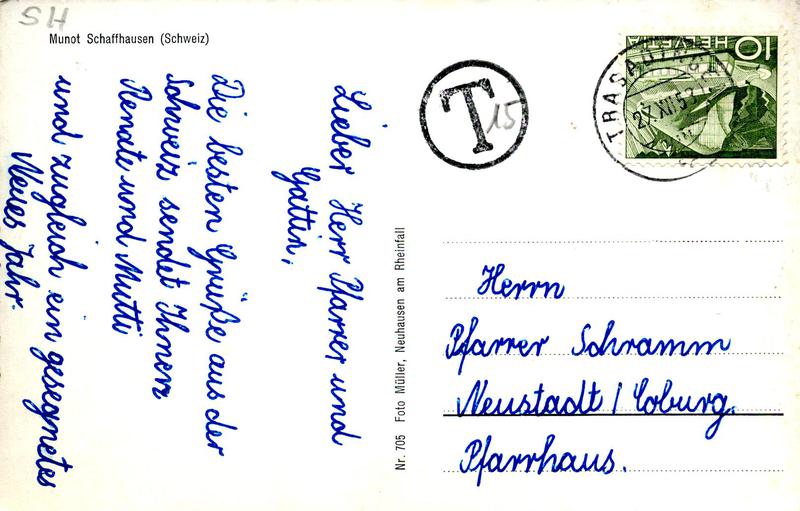 SH
Munot Schaffhausen (Schweiz)
Lieber Herr Pfarrer und
Gattin,
Die besten Grüße aus der
Schweiz sendet Ihnen
Renate und Mutti
und zugleich ein gesegnetes
Neues Jahr.
Nr. 705 Foto Müller, Neuhausen am Rheinfall
T
15
10 HELVETIA
TRASADINGEN
27.XII.53
Herrn
Pfarrer Schramm
Neustadt / Coburg.
Pfarrhaus.